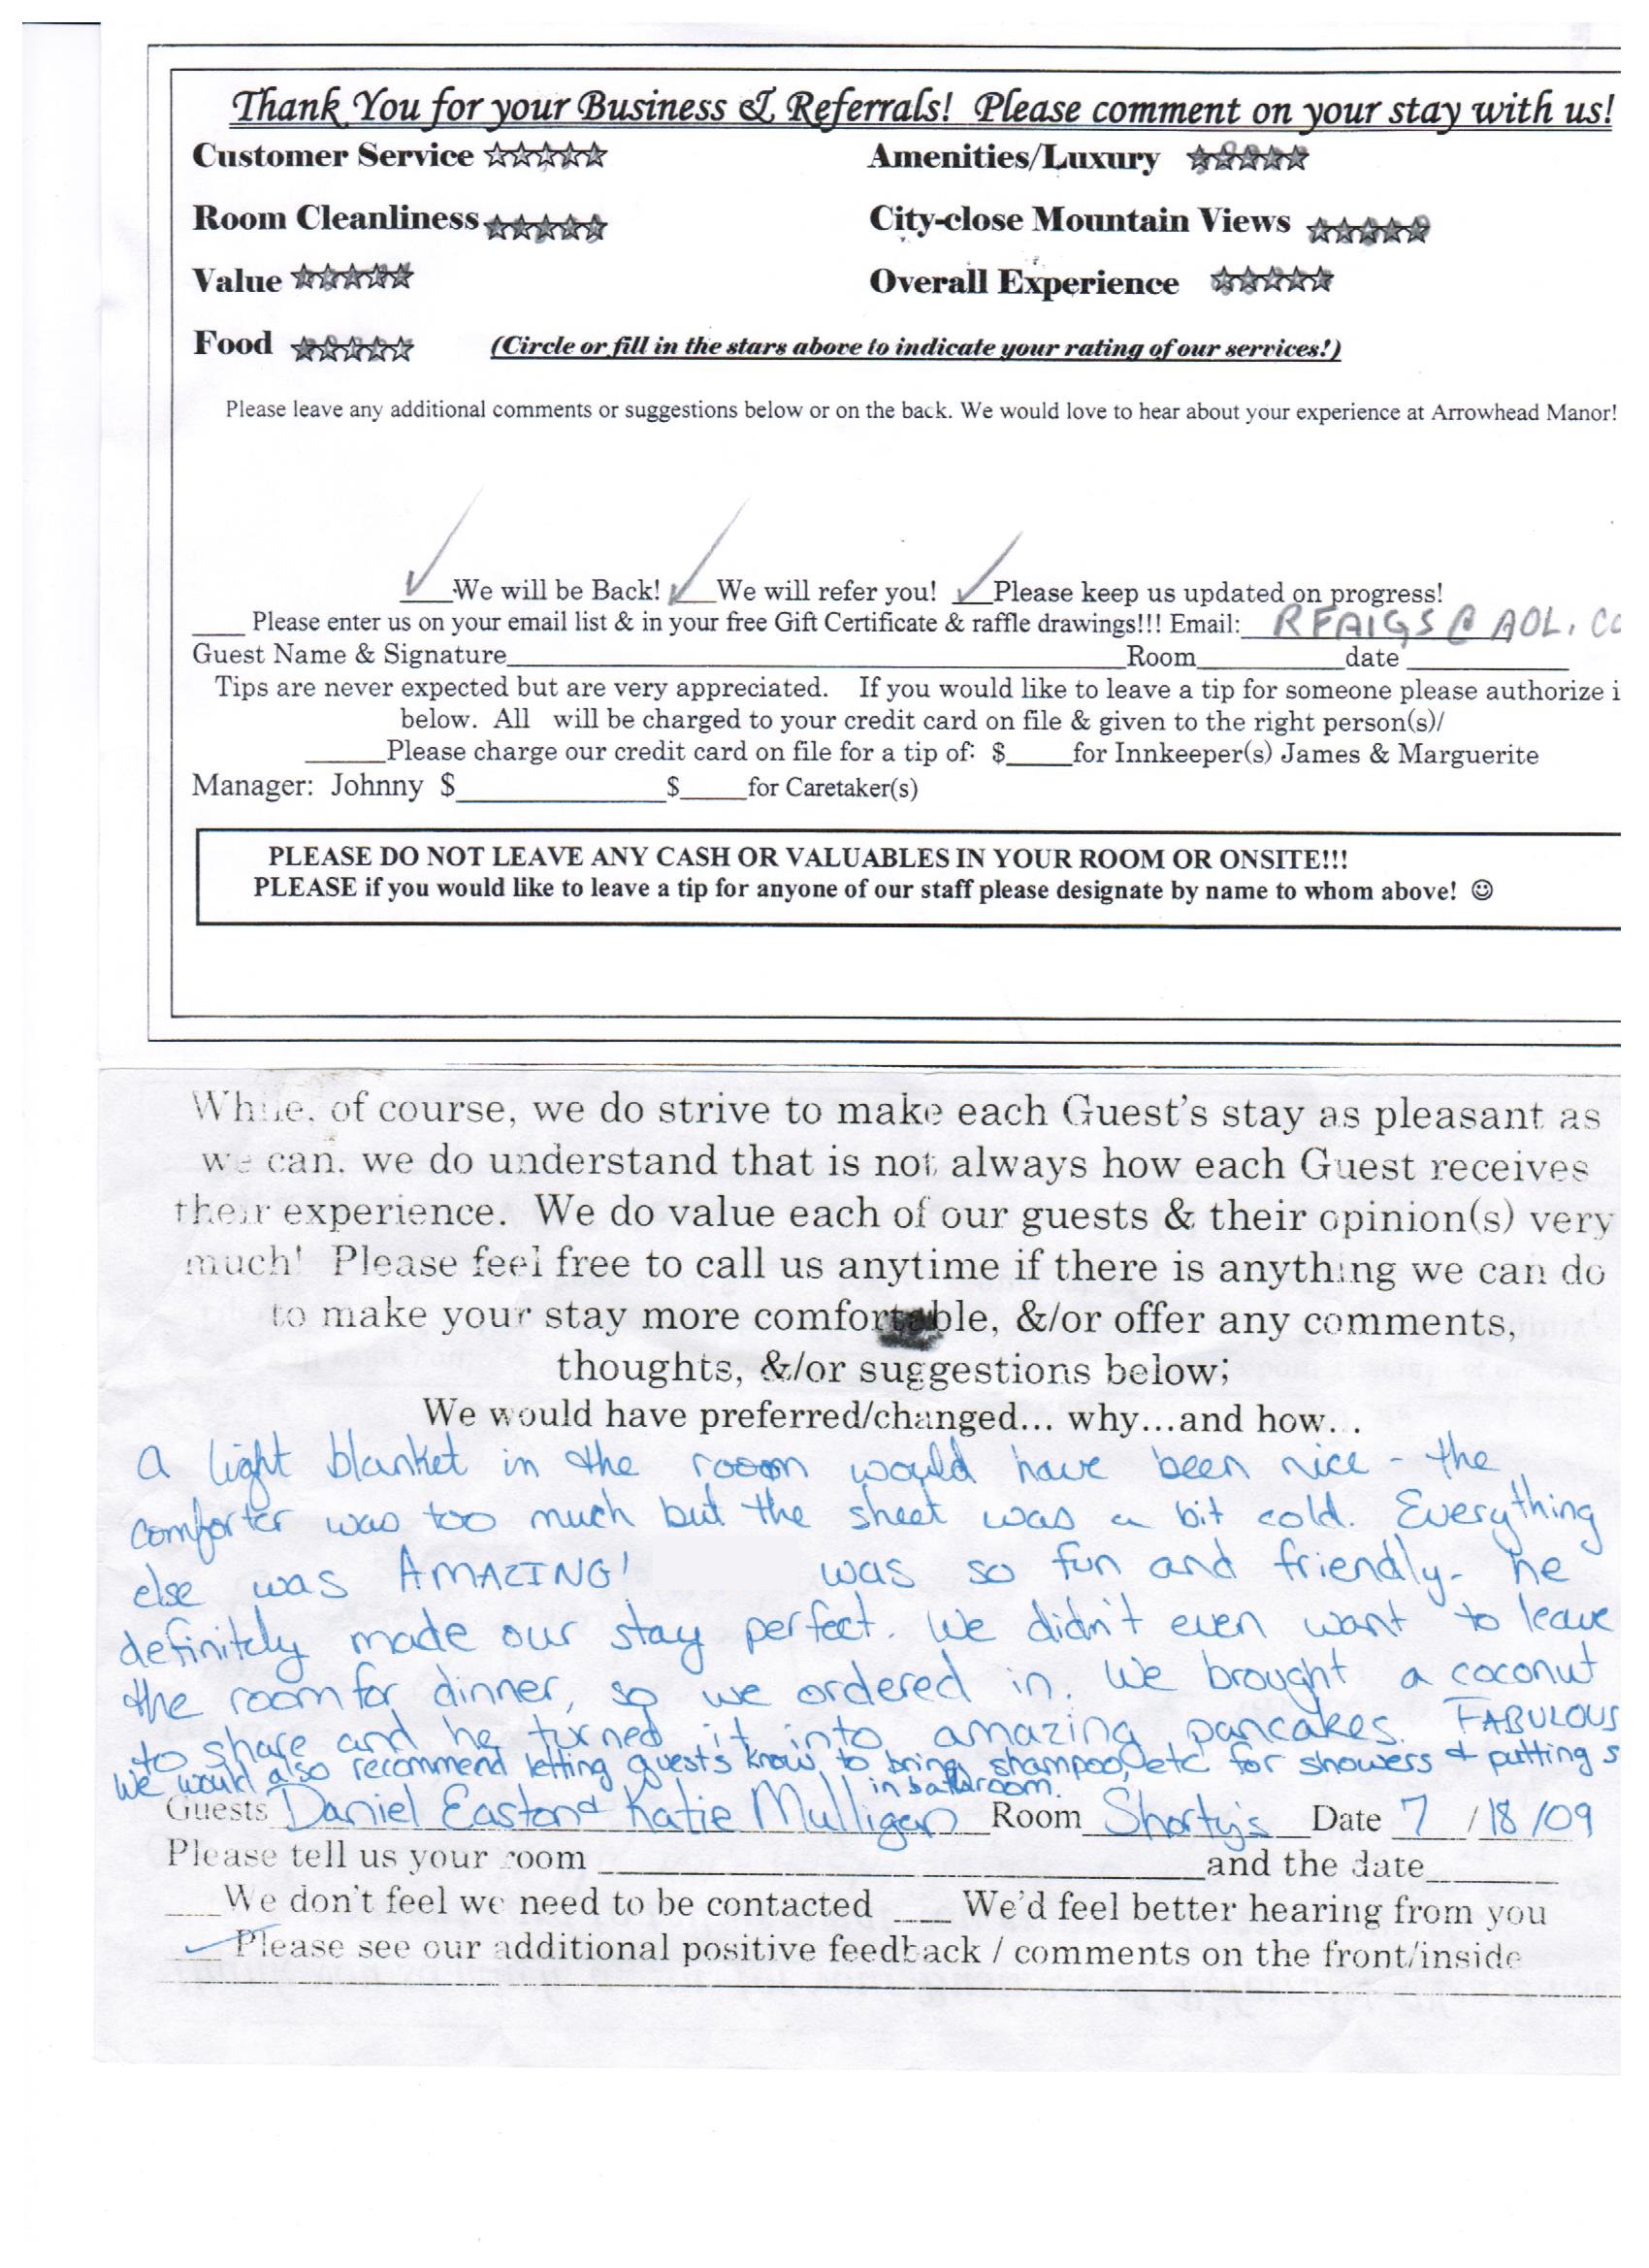 Thank You for your Business & Referrals! Please comment on your stay with us!
Customer Service ☆☆☆☆☆ Amenities/Luxury ☆☆☆☆☆
Room Cleanliness ☆☆☆☆☆ City-close Mountain Views ☆☆☆☆☆
Value ☆☆☆☆☆ Overall Experience ☆☆☆☆☆
Food ☆☆☆☆☆ (Circle or fill in the stars above to indicate your rating of our services!)
Please leave any additional comments or suggestions below or on the back. We would love to hear about your experience at Arrowhead Manor!
✓ We will be Back! ✓ We will refer you! ✓ Please keep us updated on progress!
____ Please enter us on your email list & in your free Gift Certificate & raffle drawings!!! Email: RFAIGS@AOL.CO
Guest Name & Signature____ Room____ date____
Tips are never expected but are very appreciated. If you would like to leave a tip for someone please authorize i
below. All will be charged to your credit card on file & given to the right person(s)/
____Please charge our credit card on file for a tip of: $____for Innkeeper(s) James & Marguerite
Manager: Johnny $____$____for Caretaker(s)
PLEASE DO NOT LEAVE ANY CASH OR VALUABLES IN YOUR ROOM OR ONSITE!!!
PLEASE if you would like to leave a tip for anyone of our staff please designate by name to whom above! ☺
While, of course, we do strive to make each Guest's stay as pleasant as
we can, we do understand that is not always how each Guest receives
their experience. We do value each of our guests & their opinion(s) very
much! Please feel free to call us anytime if there is anything we can do
to make your stay more comfortable, &/or offer any comments,
thoughts, &/or suggestions below;
We would have preferred/changed... why...and how...
A light blanket in the room would have been nice - the
comforter was too much but the sheet was a bit cold. Everything
else was AMAZING! was so fun and friendly - he
definitely made our stay perfect. We didn't even want to leave
the room for dinner, so we ordered in. We brought a coconut
to share and he turned it into amazing pancakes. FABULOUS
We would also recommend letting guests know to bring shampoo, etc for showers & putting s
in bathroom.
Guests Daniel Easton & Katie Mulligan Room Shorty's Date 7/18/09
Please tell us your room ____ and the date____
____We don't feel we need to be contacted ____ We'd feel better hearing from you
✓ Please see our additional positive feedback / comments on the front/inside